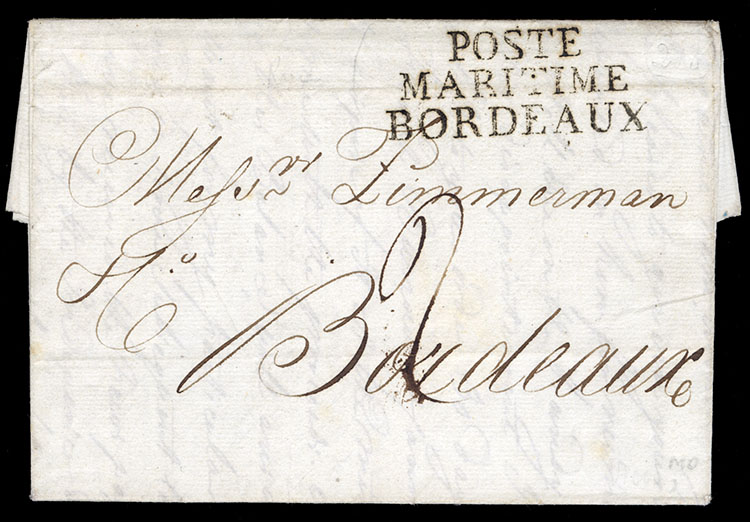 POSTE
MARITIME
BORDEAUX
Messrs Zimmerman
2
Bordeaux